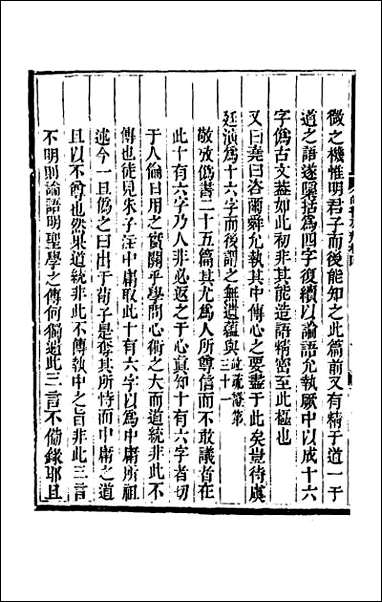 微之機惟明君子而後能知之此篇前又有精于道一于
道之語遂隱括爲四字復續以論語允執厥中以成十六
字僞古文蓋如此初非其能造語精密至此極也
又曰堯曰咨爾舜允執其中傳心之要盡于此矣豈待虞
廷演爲十六字而後謂之無遺蘊與
疏證第
三十一
敬攷僞書二十五篇其尤爲人所尊信而不敢議者在
此十有六字乃人非必返之于心真知十有六字者切
于人倫日用之實關乎學問心術之大而道統非此不
傳也徒見朱子注中庸取此十有六字以爲中庸所祖
述今一旦僞之曰出于荀子是奪其所恃而中庸之道
且以不尊也然果道統非此不傳執中之旨非此三言
不明則論語明聖學之傳何獨遺此三言不備錄耶且